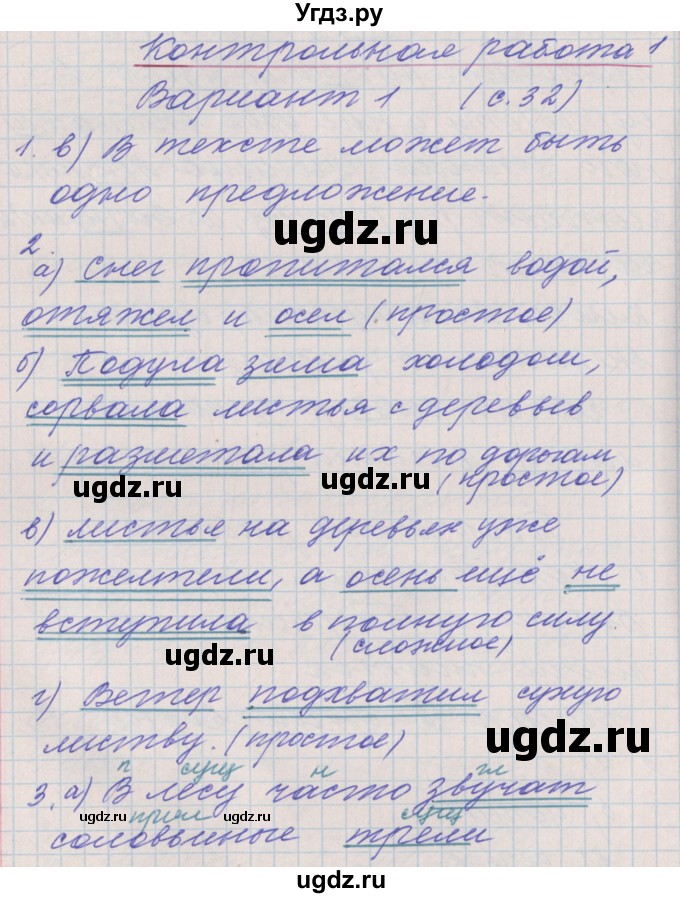 Угдз.ру
Контрольная работа 1
Вариант 1 (с.32)
1. в) В тексте может быть
одно предложение.
ugdz.ru
2.
а) Снег пропитался водой,
отяжел и осел (простое)
ugdz.ru
б) Подула зима холодом,
сорвала листья с деревьев
и разметала их по дорогам
(простое)
ugdz.ru
ugdz.ru
в) листья на деревьях уже
пожелтели, а осень ещё не
вступила в полную силу.
(сложное)
ugdz.ru
г) Ветер подхватил сухую
листву. (простое)
ugdz.ru
п сущ н гл
3. а) В лесу часто звучат
прил сущ
соловьиные трели
ugdz.ru
ugdz.ru
ugdz.ru